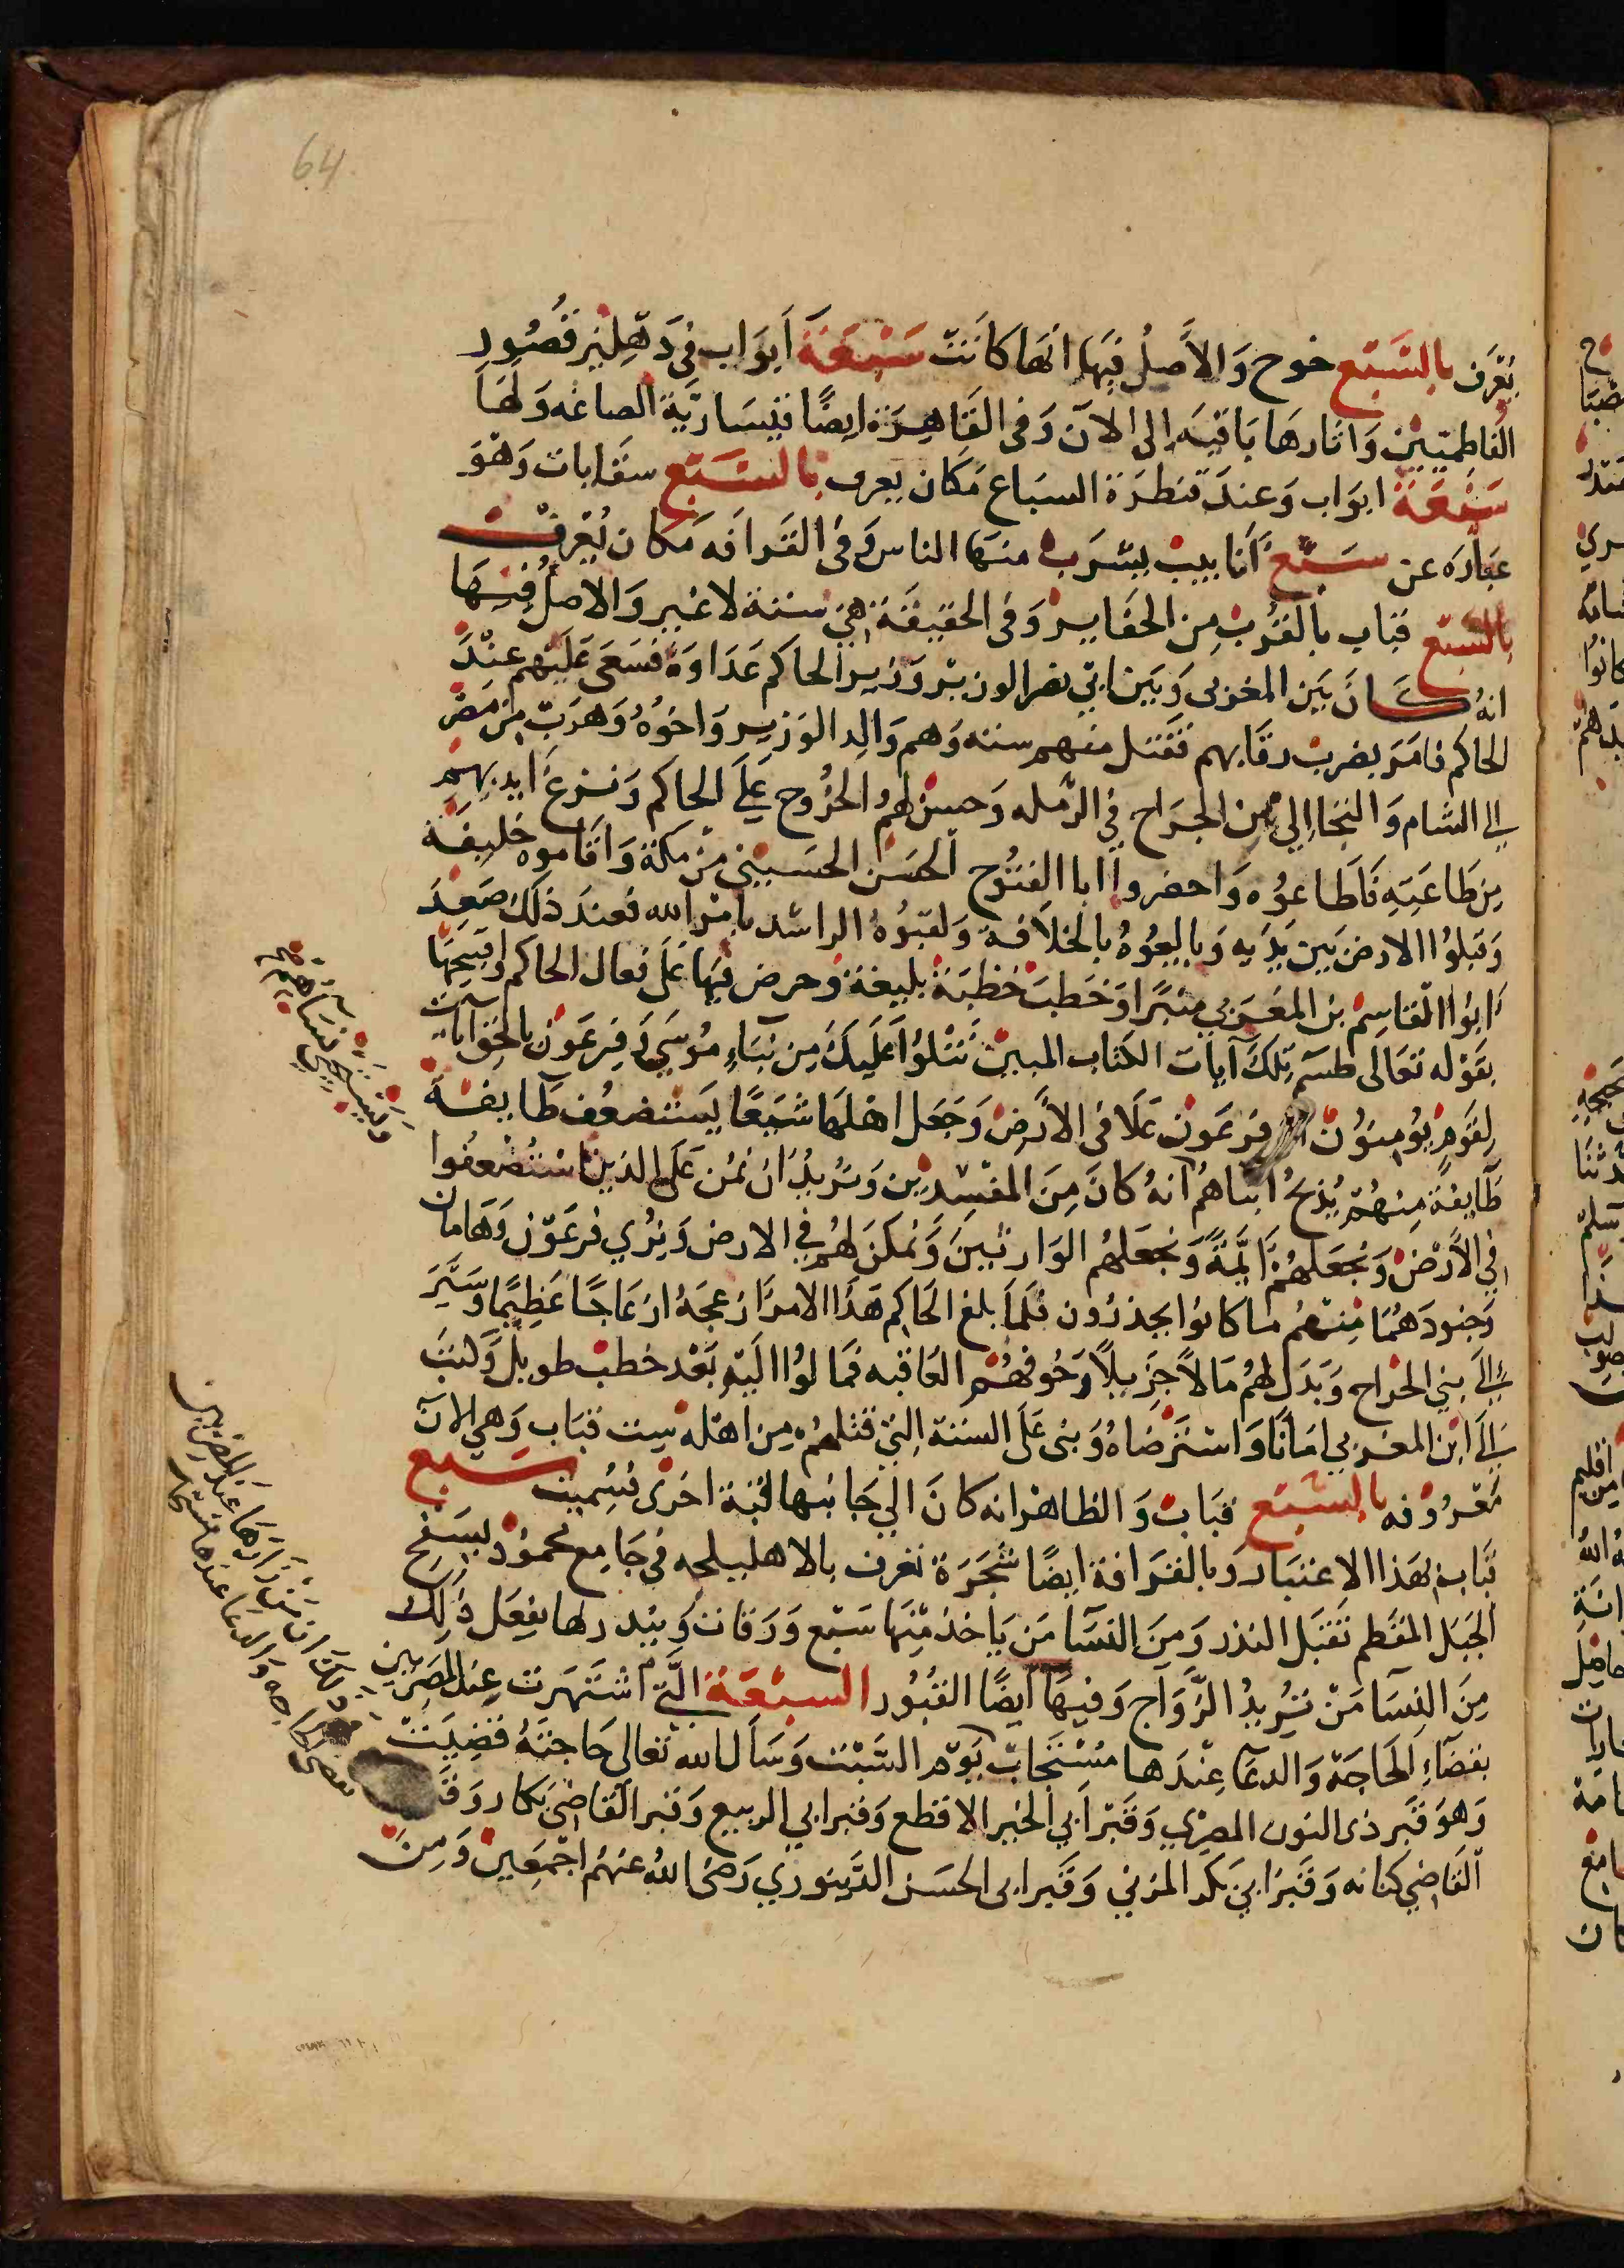 64
يُعْرَف بالسَّبْع خوخ وَالأصلُ فيهَا انها كانَت سَبْعَة أبوَاب في دَهْليز قصُور
الفَاطِميّين وَاثارهَا بَاقيَه إلى الان وَفى القَاهِرَة ايضًا قيسَاريّة الصاغه وَلهَا
سَبْعَة ابوَاب وَعندَ قنطرَة السبَاع مَكان يعرف بالسَّبْع سقايات وَهوَ
عبَارَه عن سَبْع أنابيب يشرَب منهَا الناس وَفى القرَافه مَكان يُعْرف
بالسَّبْع قبَاب بالقرْب مِن الحفاير وَفى الحقيقة هيَ ستة لا غير وَالاصل فيهَا
انهُ كَانَ بَين المغربى وَبَين ابى نصر الوزير وَزير الحاكم عَدَاوَة فسَعَى عَليهم عندَ
الحاكم فامَرَ بضرب رقابهم فقتل منهم سته وَهم وَالد الوَزير وَاخوُهُ وَهرَبَ مِن مصْر
إلى الشام وَالتجا إلى ابن الجراح في الرّمله وَحسن لهُم الخرُوج عَلى الحاكم وَنزع ايديهم
مِن طَاعَتِهِ فَاطَاعوُه وَاحضروا ابا الفتوُح الحسَن الحسَيني مِن مَكة وَاقاموه خليفَة
وَقبلوُا الارض بَين يَدَيه وَبايعُوهُ بالخلاَفة وَلقبُوُهُ الراشد بامْر الله فعندَ ذلكَ صَعِدَ
ابوُا القاسِم بن المغرَبي منبرًا وَخطبَ خطبَة بليغة وَحرض فيهَا عَلى فعال الحاكم وافتتحهَا
بقَوْله تعَالى طسم تِلكَ آيات الكتاب المبين نَتْلوُا عَليكَ مِن نبَاءِ موُسَى وَفِرعَوْن بالحق
لِقَومٍ يؤمنوُنَ ان فرعَون عَلاَ في الأرض وَجَعل اهْلهَا شيَعًا يَستضعف طَايفةً
طَايفةً مِنهُمْ يُذبحُ ابناهُم انهُ كانَ مِنَ المفسِدين وَنريدُ ان نمُن عَلى الذين استُضعِفوُا
في الأرْض وَنجعَلهُمْ ايَّمةً وَنجعَلهُم الوَارثينَ وَنمكن لهُم في الارض وَنُري فرعَوْن وَهَامان
وَجنودَهُمَا مِنهُم ما كانوُا يحذرُون فلمَا بلغ الحاكم هَذا الامرَ ازعجَهُ ازعَاجًا عَظِيمًا وَسَيَّرَ
إلى بني الجرَاح وَبَذل لهُم مَالاً جَزيلاً وَخوفهُم العَاقبه فمَالوُا اليَهِ بَعْد خطب طويل وَكتبَ
إلى ابن المغربي امَانا وَاسترْضاهُ وَبنى عَلى الستة التي قتلهُمْ مِن اهْله ست قبَاب وَهي الآن
مَعْرُوفه بالسَّبْع قبَاب وَالظاهر انه كان إلي جَانبها قبَة اخرَى فسُميت سَبع
قبَاب بهَذا الاعتبَار وَبالقرَافة ايضًا شجَرَة تعرف بالاهليلجه في جَامع محموُد بسَفح
الجَبَل المقطم تقبَل النذر وَمِنَ النسَا مَن يَاخذ مِنهَا سَبْع وَرَقات وَيبدرها يفعَل ذلك
مِنَ النسَا مَنْ تُريدُ الزَّوَاج وَفيهَا ايضًا القبُور السَبْعَة التَّى اشتَهرَت عِند المصريين
بقضَاءِ الحَاجَة وَالدعَا عِنْدَهَا مُسْتَجابْ يَوْم السَّبْت وَسَأل الله تعَالى حَاجتَهُ قضِيَتْ
وَهوَ قَبر ذى النون المصري وَقَبْر أبي الخير الاقطع وَقبر ابي الربيع وَقبر القاضي بَكار وَقَبر
القَاضي كنانه وَقَبر ابي بَكر المزني وَقَبر ابى الحسَن الدَّينوري رَضى اللهُ عنهُم اجْمَعِين وَمِنَ
آيات
وَيستحيي نسَاهُم